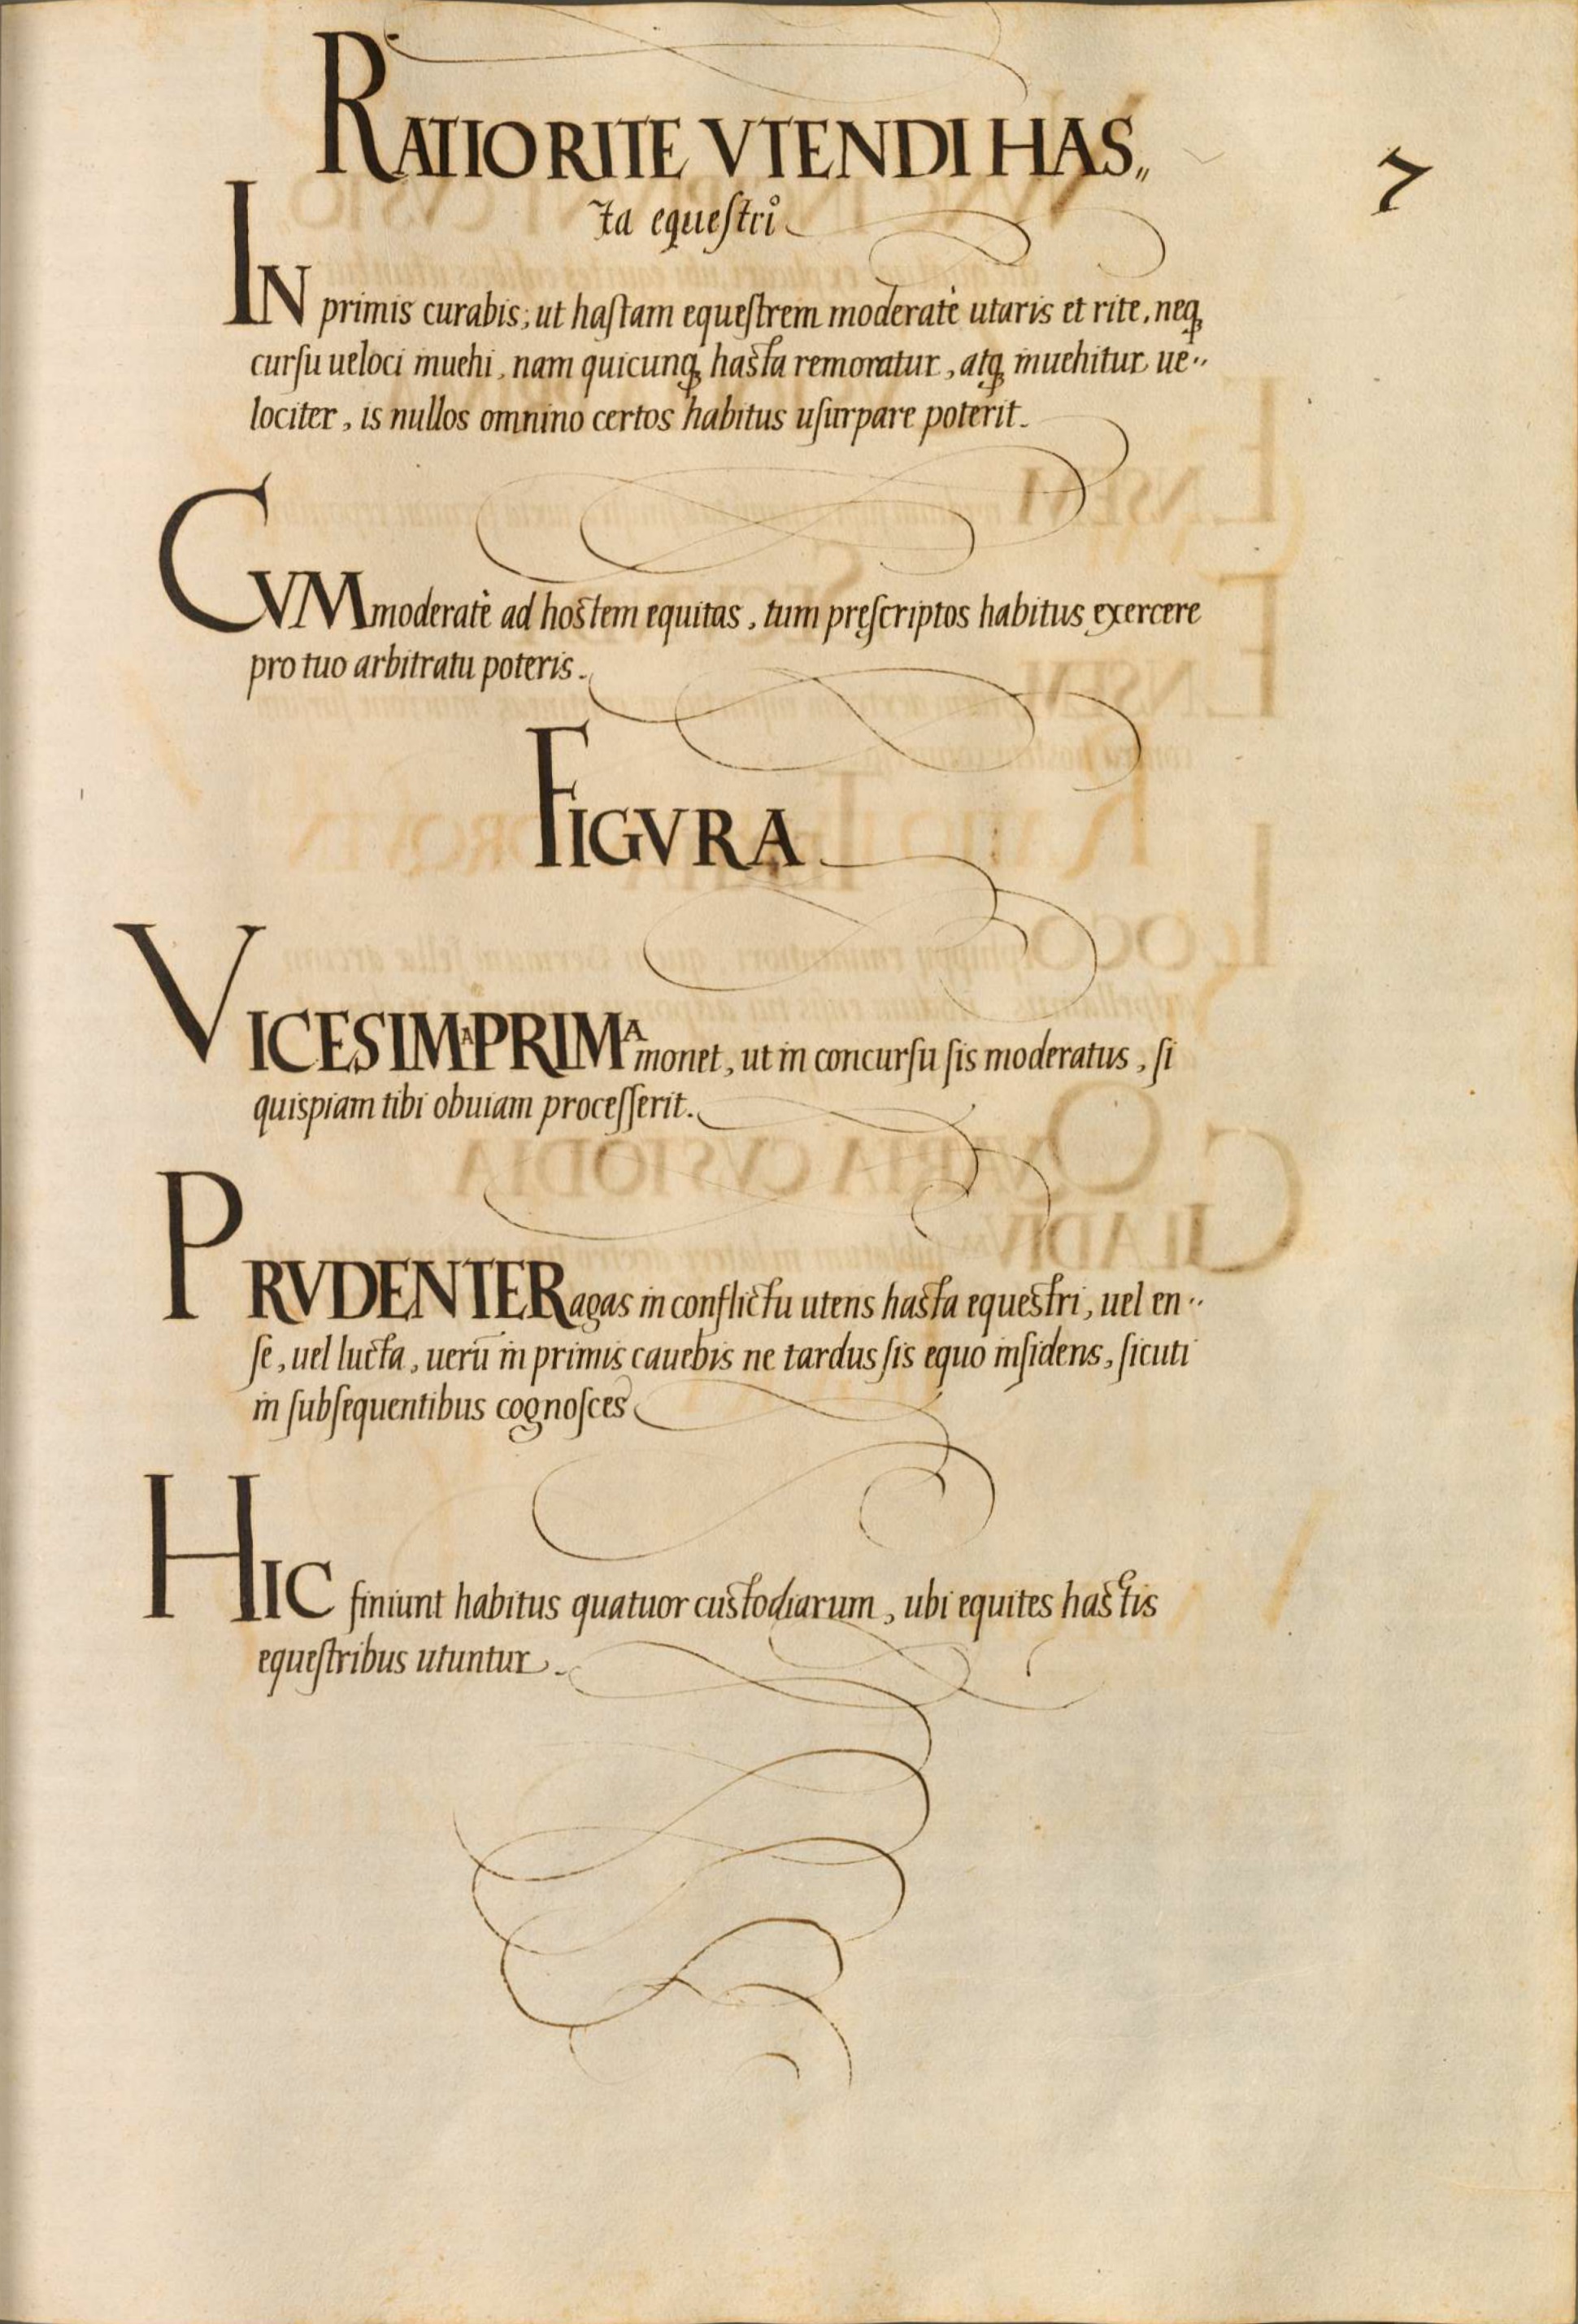 RATIO RITE VTENDI HAS„
ta equeſtri
7
IN primis curabis, ut haſtam equeſtrem moderatè utaris et rite, neqꝫ
curſu ueloci inuehi, nam quicunqꝫ haſta remoratur, atqꝫ inuehitur ue..
lociter, is nullos omnino certos habitus uſurpare poterit.
CVM moderatè ad hoſtem equitas, tum pręſcriptos habitus exercere
pro tuo arbitratu poteris.
FIGVRA
VICESIMA PRIMA monet, ut in concurſu ſis moderatus, ſi
quispiam tibi obuiam proceſſerit.
PRVDENTER agas in conflictu utens haſta equeſtri, uel en..
ſe, uel lucta, uerū in primis cauebis ne tardus ſis equo inſidens, ſicuti
in ſubſequentibus cognoſces
HIC finiunt habitus quatuor cuſtodiarum, ubi equites haſtis
equeſtribus utuntur.